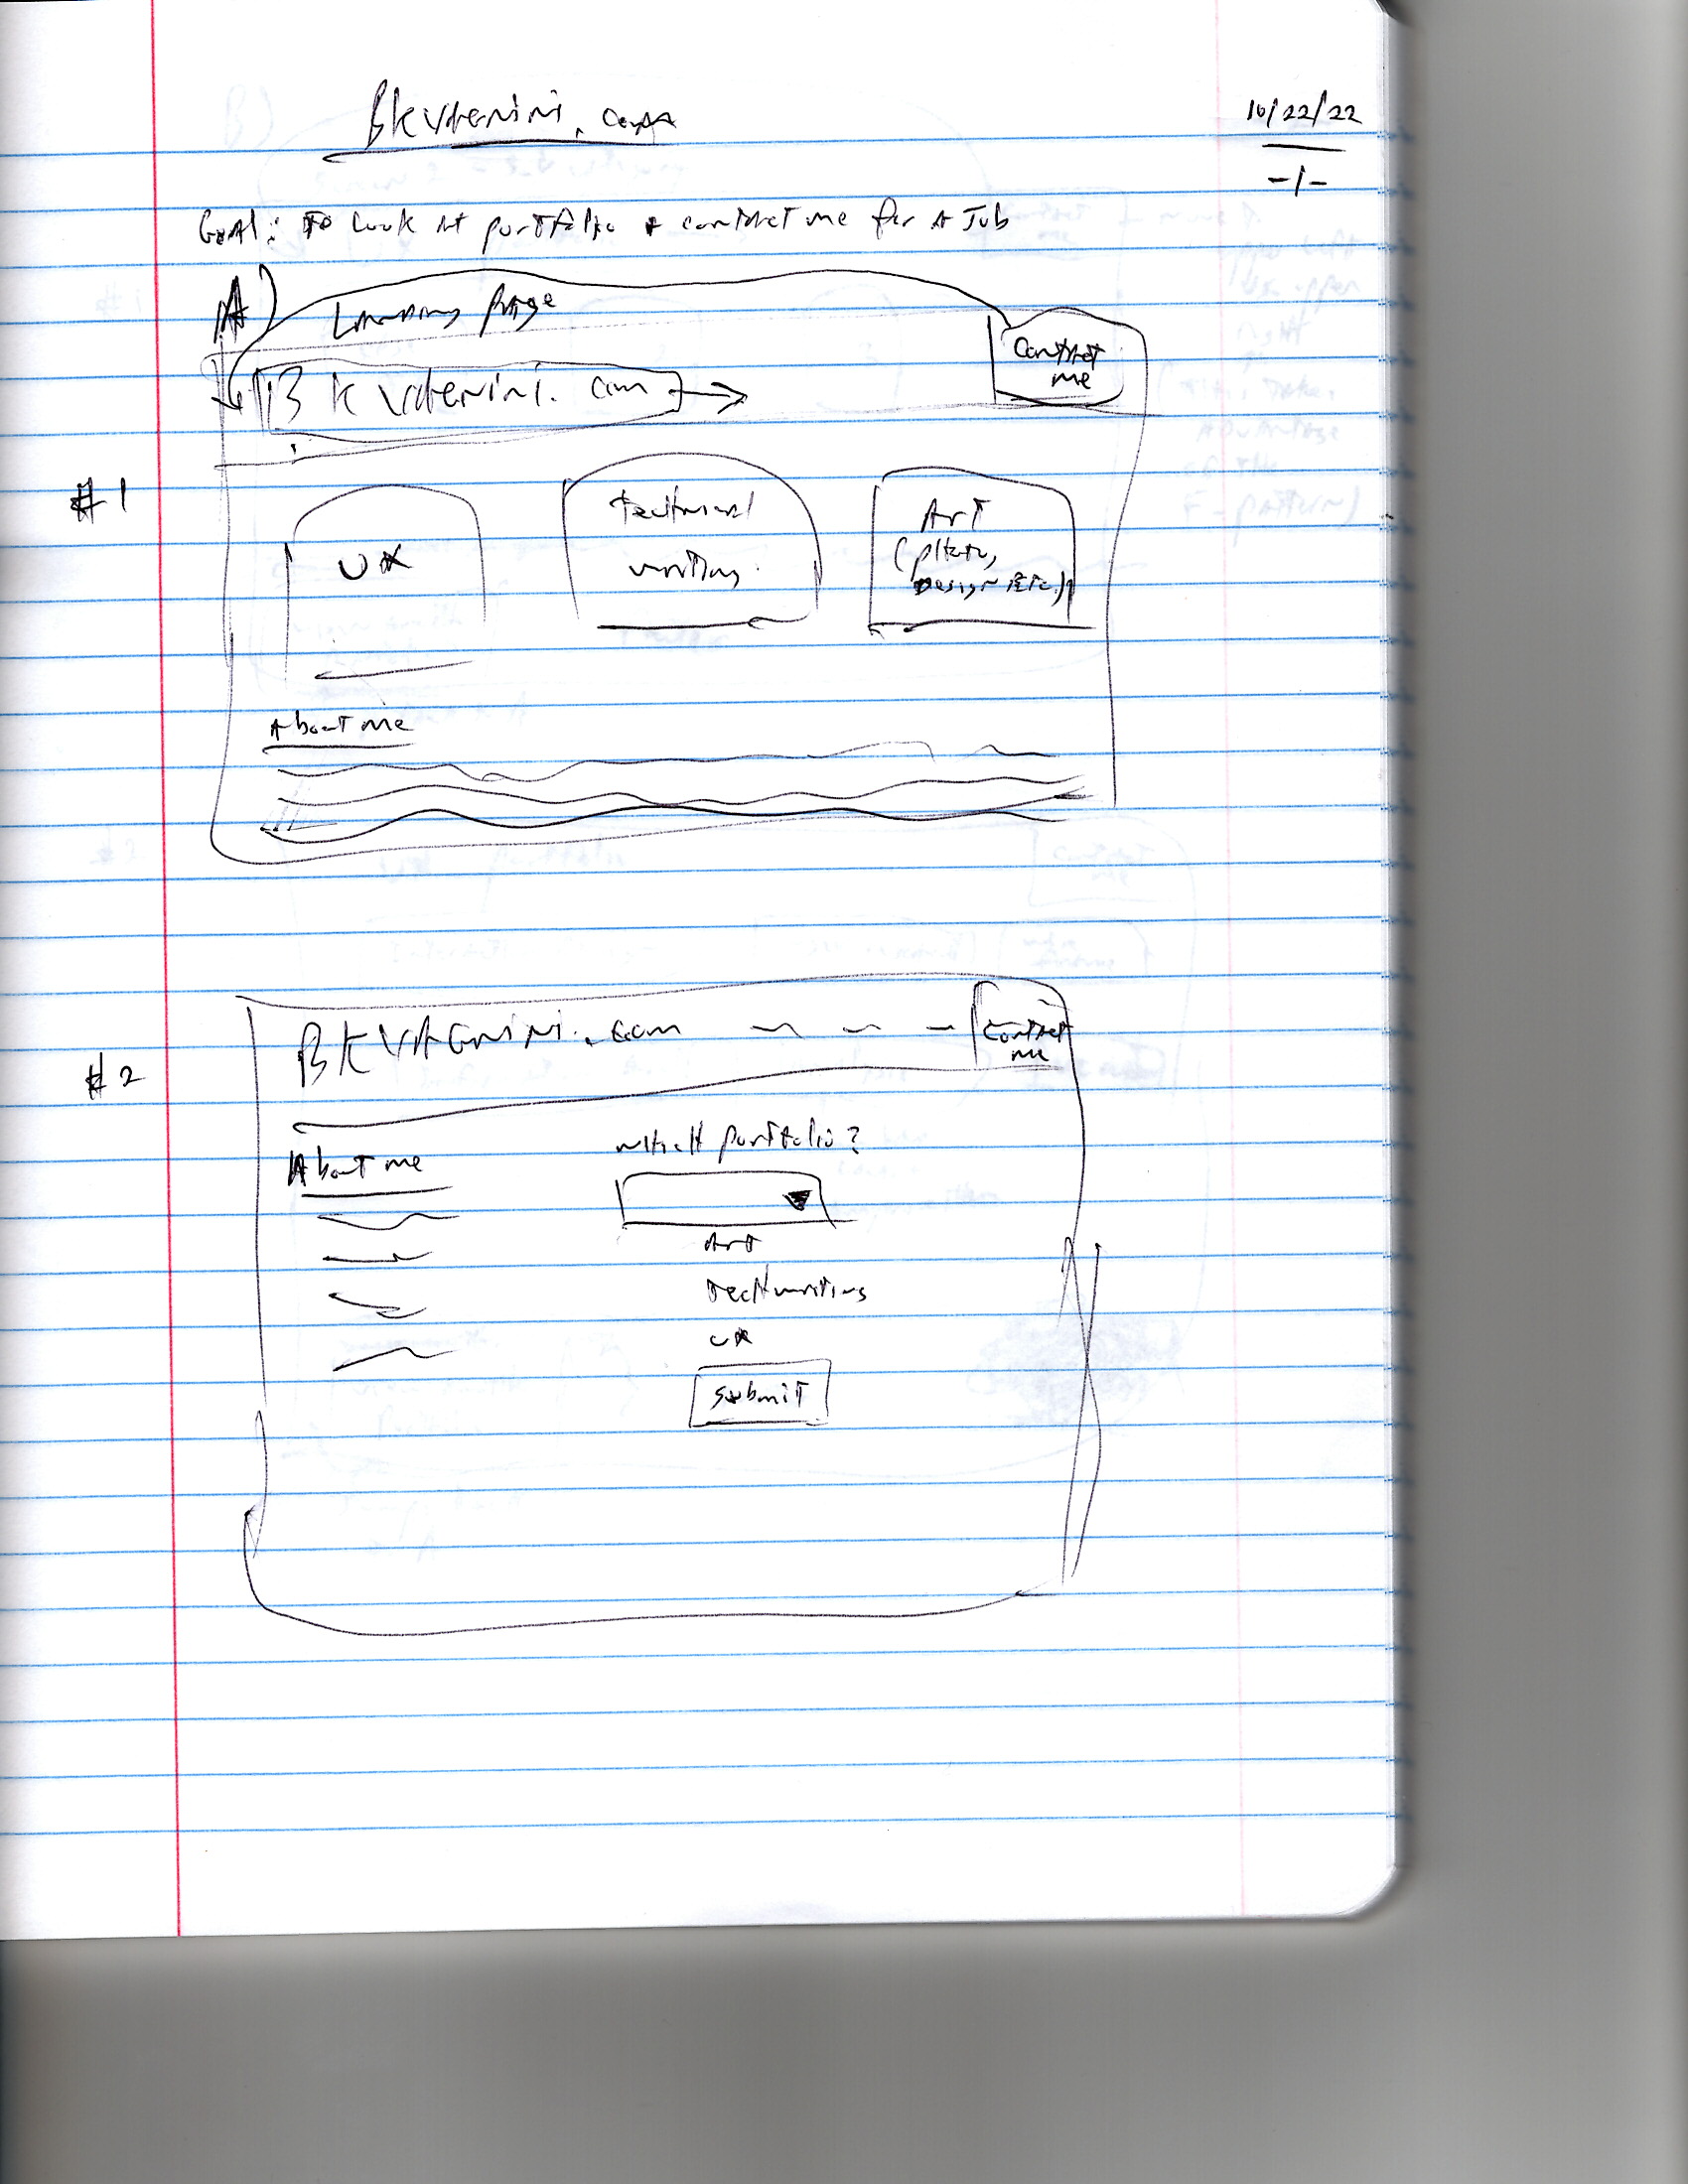 10/22/22
-1-
Goal: to look at portfolio + contact me for a Job
A)
Landing page
Contact
me
#1
UX
Technical
writing
Art
(photo,
Design etc.)
About me
#2
Contact
me
About me
which portfolio?
Art
Tech writing
UX
Submit